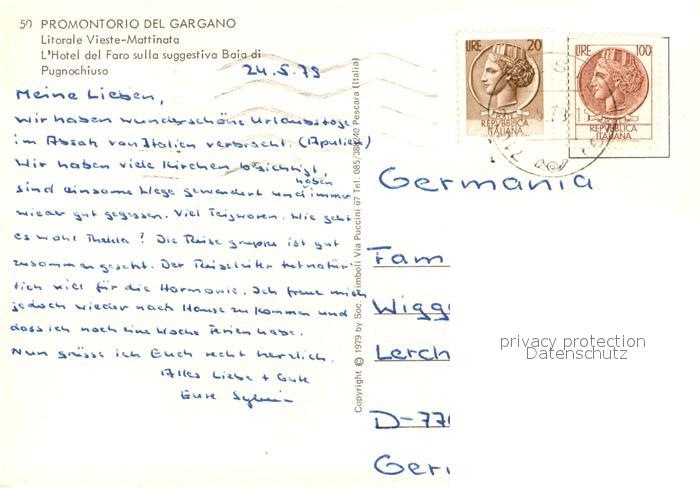 50 PROMONTORIO DEL GARGANO
Litorale Vieste-Mattinata
L'Hotel del Faro sulla suggestiva Baia di
Pugnochiuso
24.5.79
Meine Lieben,
Wir haben wunderschöne Urlaubstage
im Absatz von Italien verbracht. (Apulien)
Wir haben viele Kirchen besichtigt,
haben
sind einsame Wege gewandert und immer
wieder gut gegessen. Viel Teigwaren. Wie geht
es wohl Thekla? Die Reisegruppe ist gut
zusammengesetzt. Der Reiseleiter tut natür-
lich viel für die Harmonie. Ich freue mich
jedoch wieder nach Hause zu kommen und
dass ich noch eine Woche Ferien habe.
Nun grüsse ich Euch recht herzlich.
Alles Liebe + Gute
Eure Sylvia
Copyright © 1979 by Soc. Trimboli Via Puccini 67 Tel. 085/ Pescara (Italia)
LIRE 20
REPVBBLICA
ITALIANA
LIRE 100
REPVBBLICA
ITALIANA
Germania
Fam
Wigg
Lerch
D-77
Geri
privacy protection
Datenschutz